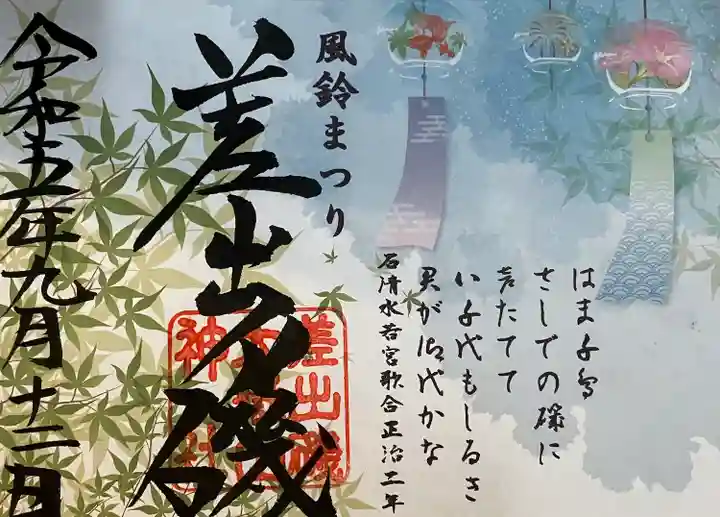 はま千鳥
さしでの磯に
声たてて
八千代もしるき
君が御代かな
石清水若宮歌合正治二年
風鈴まつり
差出磯
差出磯
神社
令和五年九月十二日